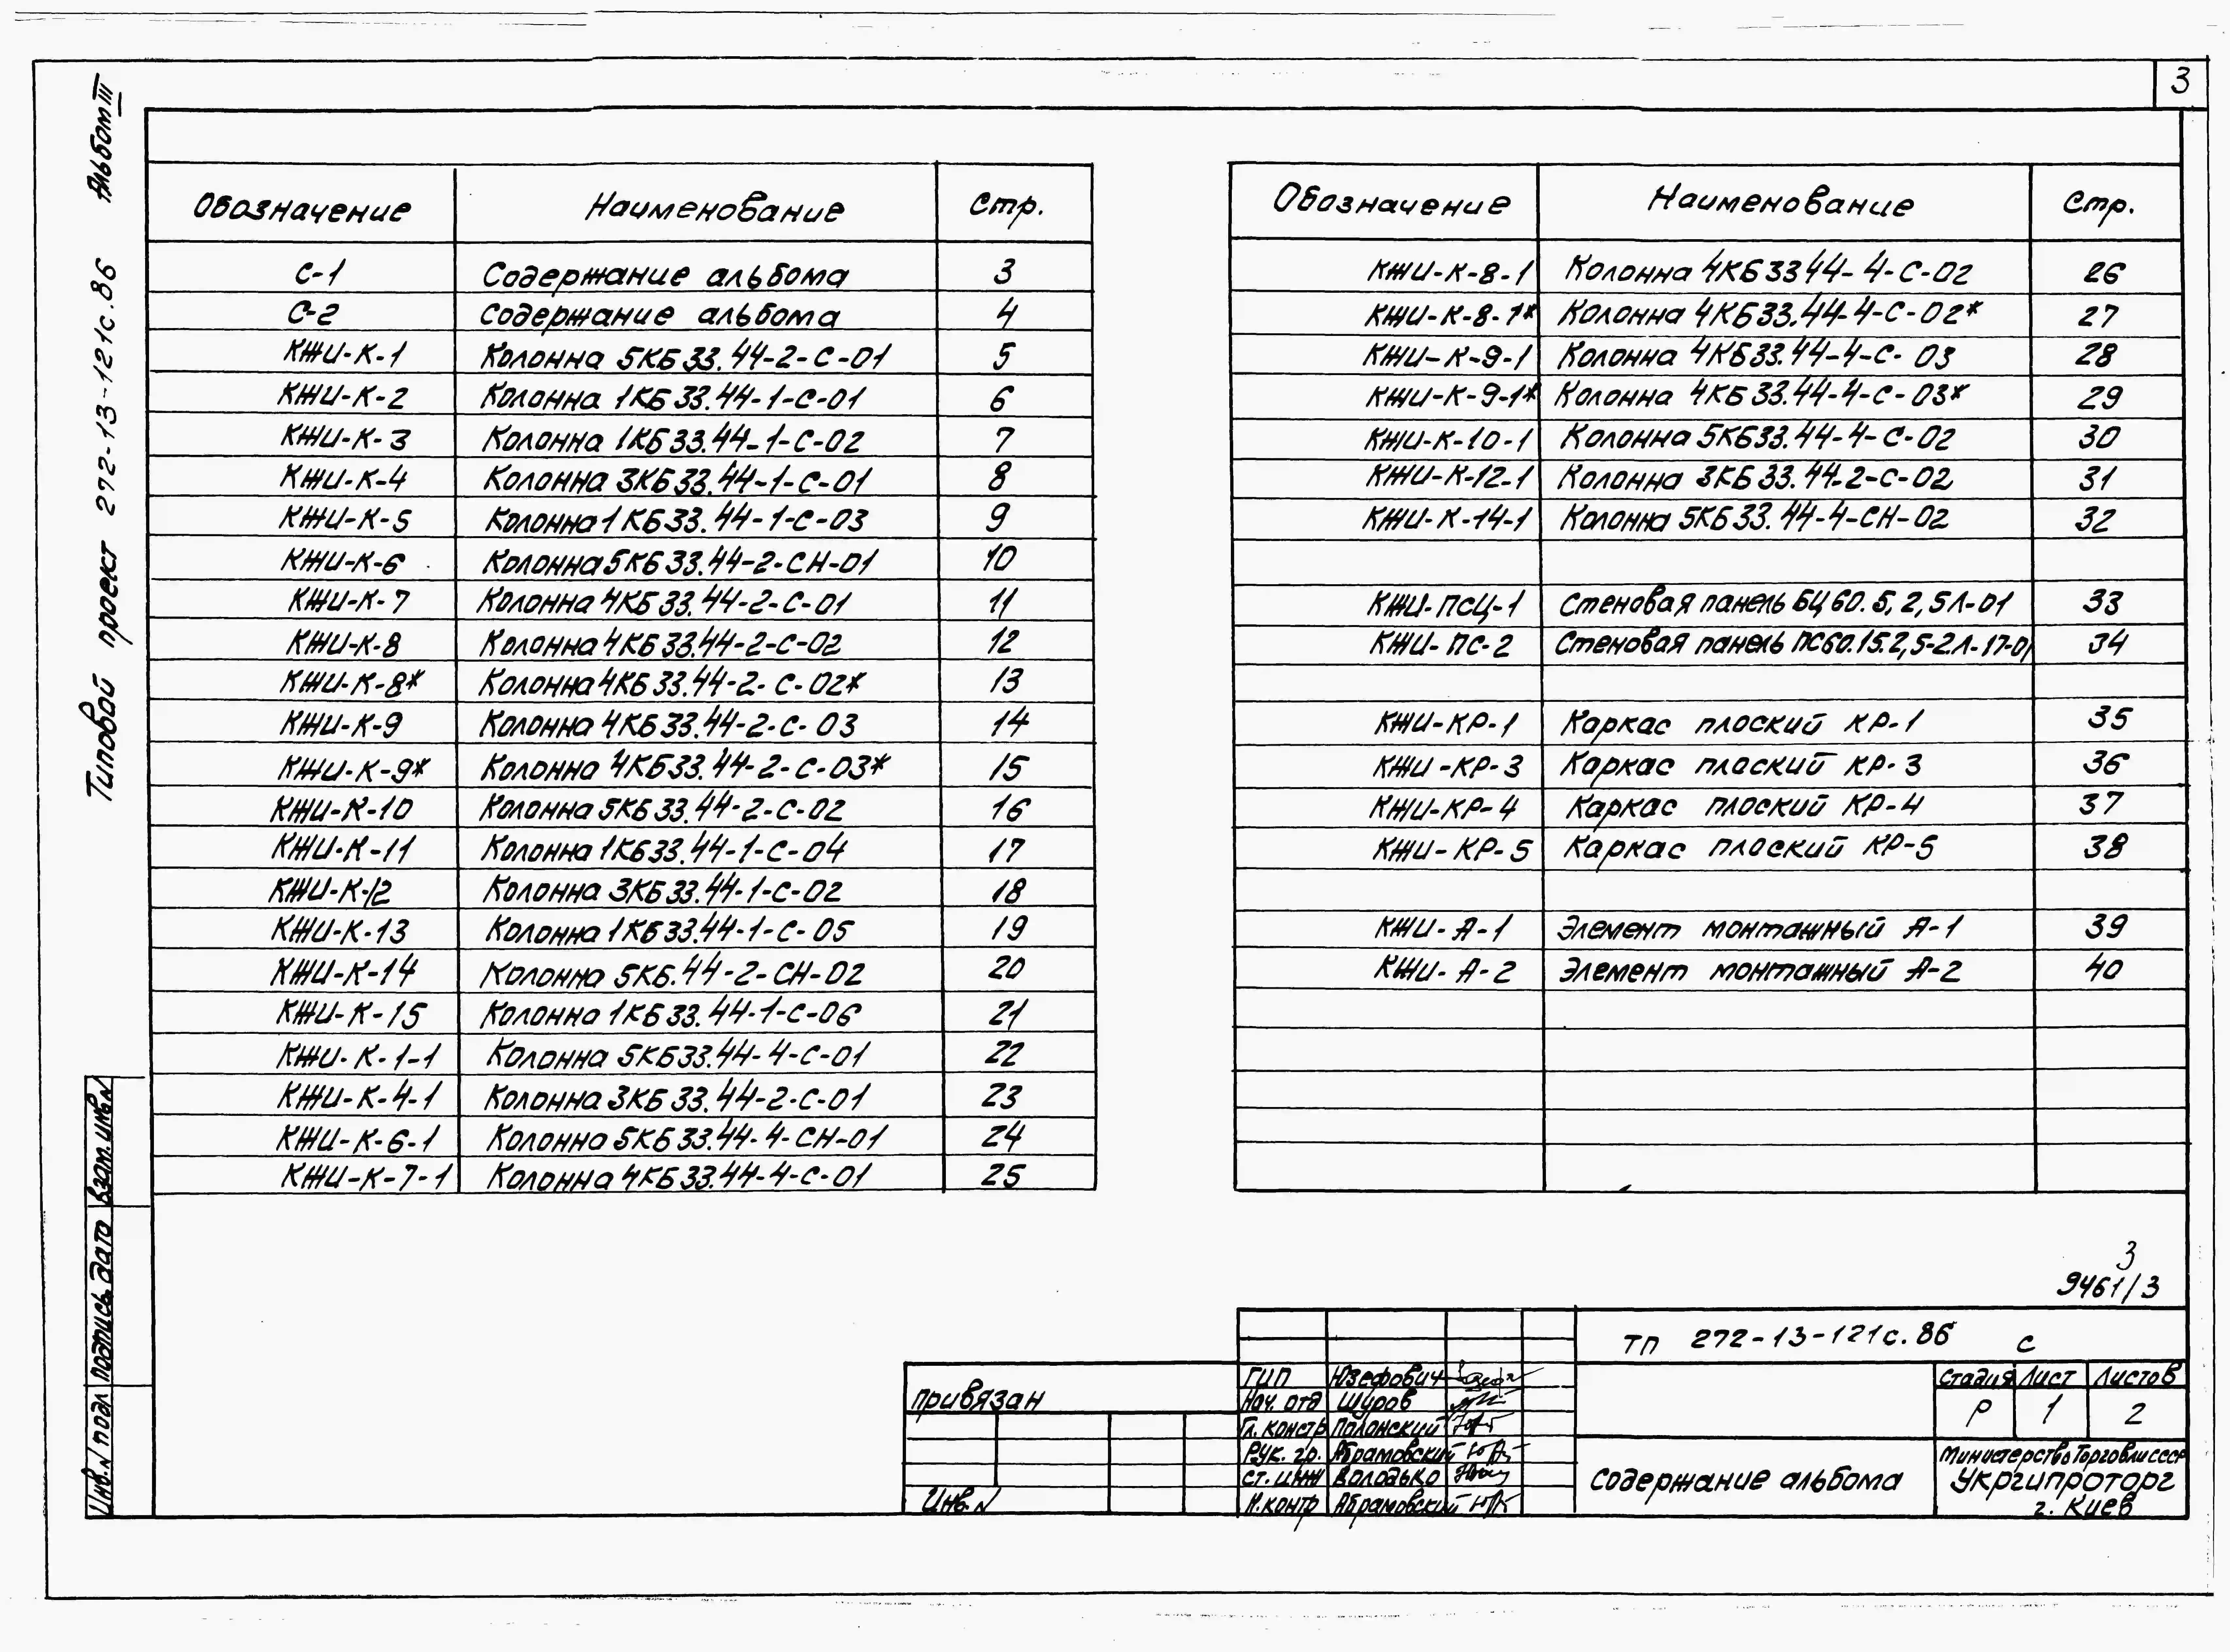 3
Альбом III
Типовой проект 272-13-121с.86
Обозначение Наименование Стр.
С-1 Содержание альбома 3
С-2 Содержание альбома 4
КЖИ-К-1 Колонна 5КБ33.44-2-С-01 5
КЖИ-К-2 Колонна 1КБ33.44-1-С-01 6
КЖИ-К-3 Колонна 1КБ33.44-1-С-02 7
КЖИ-К-4 Колонна 3КБ33.44-1-С-01 8
КЖИ-К-5 Колонна 1КБ33.44-1-С-03 9
КЖИ-К-6 Колонна 5КБ33.44-2-СН-01 10
КЖИ-К-7 Колонна 4КБ33.44-2-С-01 11
КЖИ-К-8 Колонна 4КБ33.44-2-С-02 12
КЖИ-К-8* Колонна 4КБ33.44-2-С-02* 13
КЖИ-К-9 Колонна 4КБ33.44-2-С-03 14
КЖИ-К-9* Колонна 4КБ33.44-2-С-03* 15
КЖИ-К-10 Колонна 5КБ33.44-2-С-02 16
КЖИ-К-11 Колонна 1КБ33.44-1-С-04 17
КЖИ-К-12 Колонна 3КБ33.44-1-С-02 18
КЖИ-К-13 Колонна 1КБ33.44-1-С-05 19
КЖИ-К-14 Колонна 5КБ.44-2-СН-02 20
КЖИ-К-15 Колонна 1КБ33.44-1-С-06 21
КЖИ-К-1-1 Колонна 5КБ33.44-4-С-01 22
КЖИ-К-4-1 Колонна 3КБ33.44-2-С-01 23
КЖИ-К-6-1 Колонна 5КБ33.44-4-СН-01 24
КЖИ-К-7-1 Колонна 4КБ33.44-4-С-01 25
Обозначение Наименование Стр.
КЖИ-К-8-1 Колонна 4КБ3344-4-С-02 26
КЖИ-К-8-1* Колонна 4КБ33.44-4-С-02* 27
КЖИ-К-9-1 Колонна 4КБ33.44-4-С-03 28
КЖИ-К-9-1* Колонна 4КБ33.44-4-С-03* 29
КЖИ-К-10-1 Колонна 5КБ33.44-4-С-02 30
КЖИ-К-12-1 Колонна 3КБ33.44-2-С-02 31
КЖИ-К-14-1 Колонна 5КБ33.44-4-СН-02 32
КЖИ-ПСЦ-1 Стеновая панель БЦ60.5,2,5Л-01 33
КЖИ-ПС-2 Стеновая панель ПС60.15.2,5-2Л-17-01 34
КЖИ-КР-1 Каркас плоский КР-1 35
КЖИ-КР-3 Каркас плоский КР-3 36
КЖИ-КР-4 Каркас плоский КР-4 37
КЖИ-КР-5 Каркас плоский КР-5 38
КЖИ-А-1 Элемент монтажный А-1 39
КЖИ-А-2 Элемент монтажный А-2 40
3
9461/3
ТП 272-13-121с.86 С
Привязан
Инв.N
ГИП Юзефович
Нач. отд Щуров
Гл. констр Полонский
Рук. гр. Абрамовский
Ст. инж Володько
Н.контр Абрамовский
Стадия Лист Листов
Р 1 2
Содержание альбома
Министерство Торговли СССР
Укргипроторг
г. Киев
Инв.N подл Подпись дата Взам.инв.N